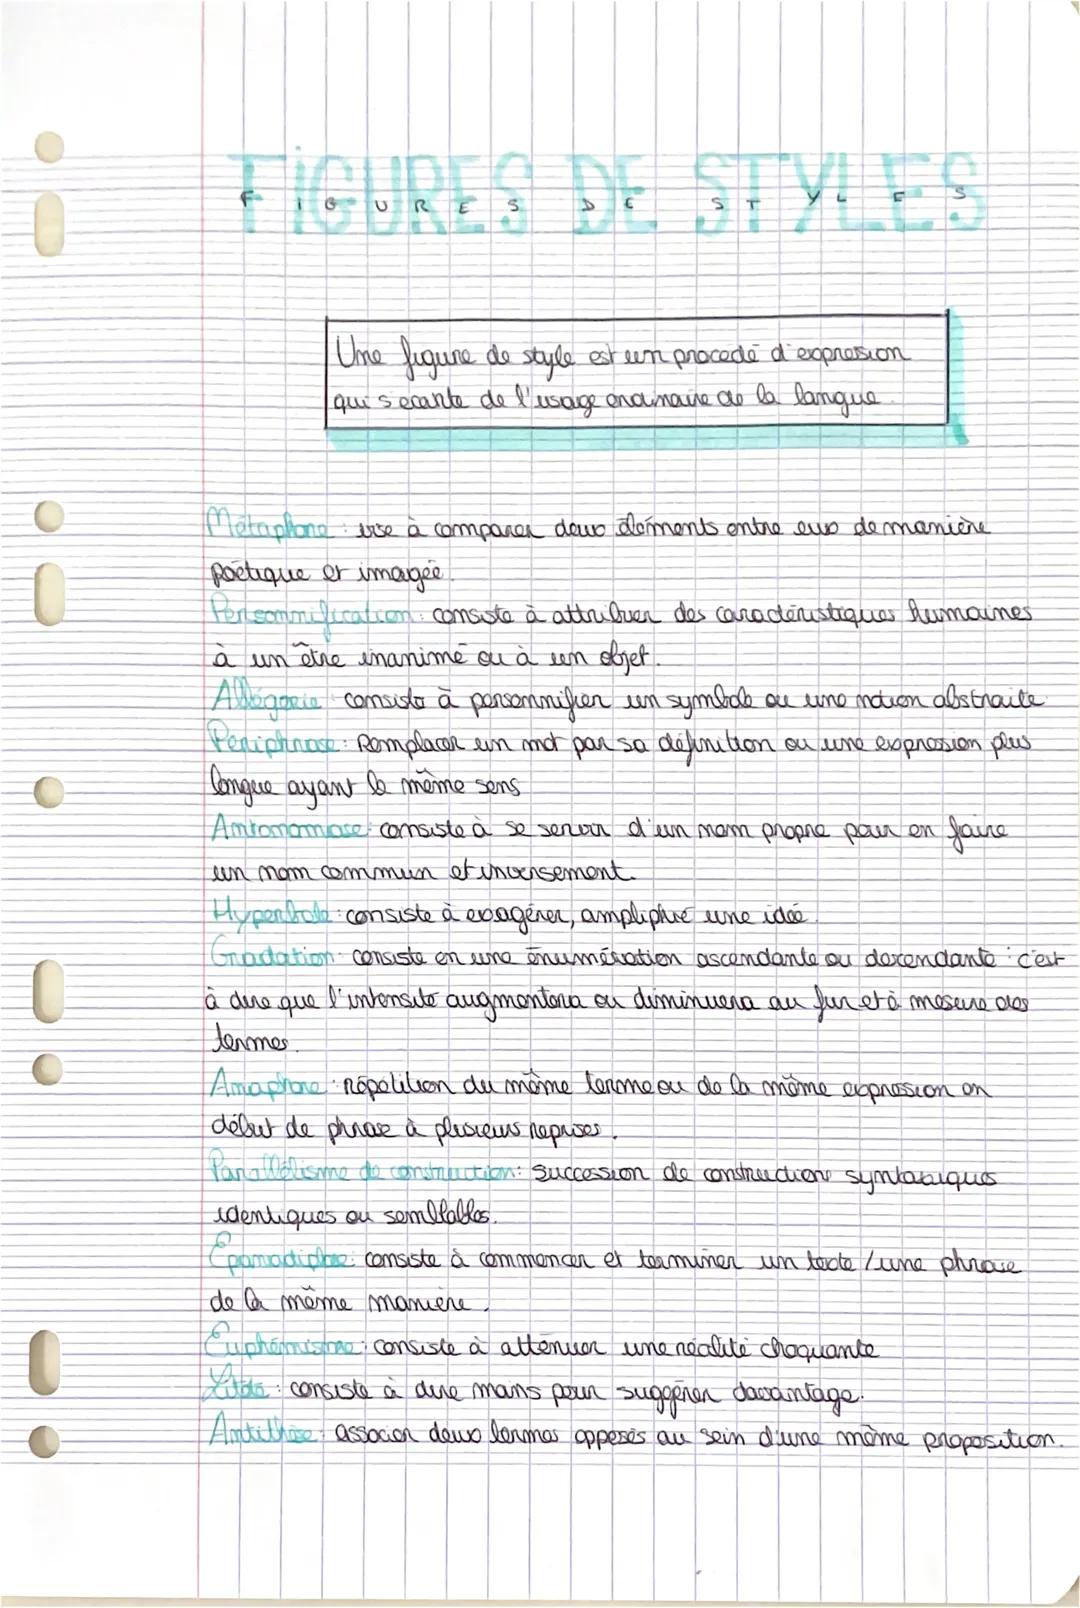 FIGURES DE STYLES
FIGURES DE STYLES
Une figure de style est un procédé d'expression
qui s'écarte de l'usage ordinaire de la langue.
Métaphore : vise à comparer deux éléments entre eux de manière
poétique et imagée.
Personnification : consiste à attribuer des caractéristiques humaines
à un être inanimé ou à un objet.
Allégorie : consiste à personnifier un symbole ou une notion abstraite.
Périphrase : Remplacer un mot par sa définition ou une expression plus
longue ayant le même sens
Antonomase : consiste à se servir d'un nom propre pour en faire
un nom commun et inversement.
Hyperbole : consiste à exagérer, ampliphié une idée.
Gradation : consiste en une énumération ascendante ou dexendante : c'est
à dire que l'intensité augmentera ou diminuera au fur et à mesure des
termes.
Anaphore : répétition du même terme ou de la même expression en
début de phrase à plusieurs reprises.
Parallélisme de construction : succession de constructions syntaxiques
identiques ou semblables.
Épanadiplose : consiste à commencer et terminer un texte / une phrase
de la même manière.
Euphémisme : consiste à atténuer une réalité choquante
Litote : consiste à dire moins pour suggérer davantage.
Antithèse : associer deux termes opposés au sein d'une même proposition.